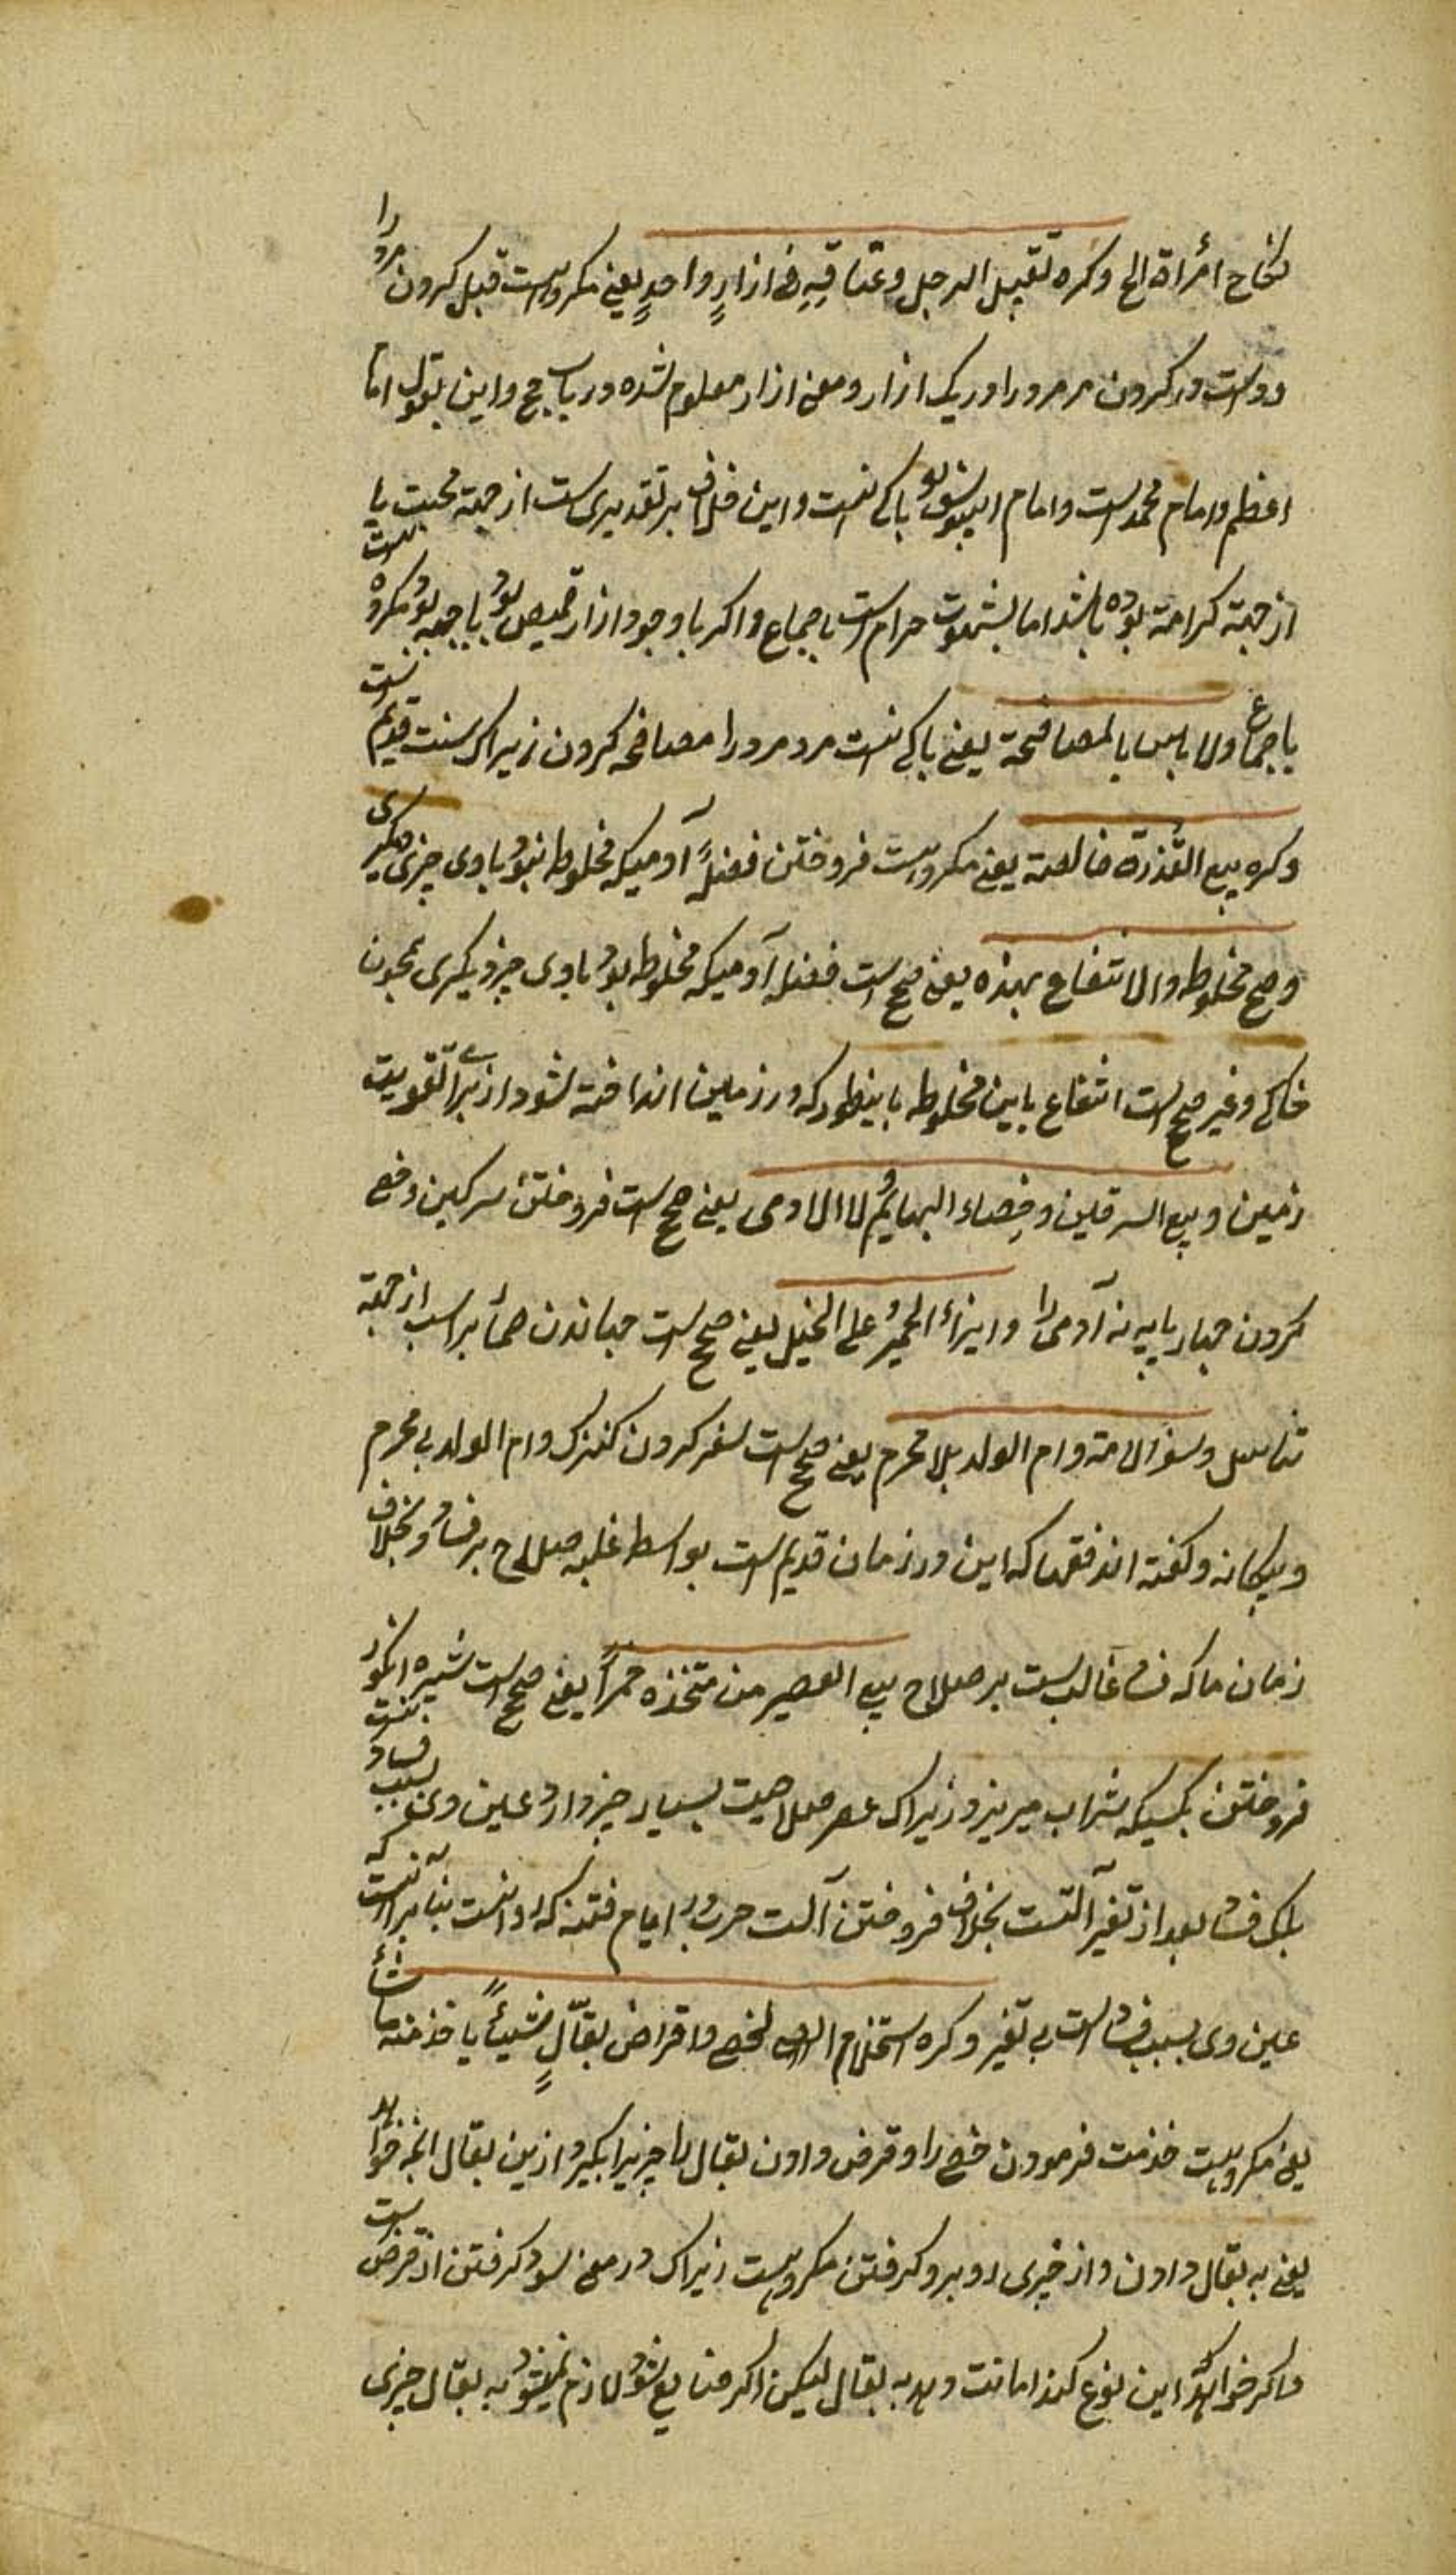 نکاح امرأة الخ وکره تقبیل الرجل وعناقه فی ازارٍ واحدٍ یعنی مکروهست قبل کردن مرد را
ودست در کردن مر مرد را در یک ازار ومعنی ازار معلوم شده در باب حج واین بقول امام
اعظم وامام محمد است وامام ابیوسف بو باکی نیست واین خلاف بر تقدیری است از جهة محبت یا
از جهة کرامة بوده باشد اما بشهوت حرام است باجماع واکر با وجود ازار قمیص بود یا جبه بود مکروه نیست
باجماع ولا باس بالمصافحة یعنی باکی نیست مرد مرد را مصافحه کردن زیراک سنت قدیم است
وکره بیع العذرة خالصة یعنی مکروهست فروختن فضلهٔ آدمیکه مخلوط نبود باوی چیزی دیکری
وصح مخلوطه والانتفاع بهذه یعنی صحیح است فضله آدمیکه مخلوط بود باوی چیز دیکری همچون
خاکی وغیر صحیح است انتفاع باین مخلوطه باینطور که در زمین انداخته شود از برای تقویت
زمین وبیع السرقین وخصاء البهایم لا الادمی یعنی صحیح است فروختن سرکین وخصی
کردن چهار پایه نه آدمی را وانزاء الحمیر علی الخیل یعنی صحیح است جهاندن حمار بر اسب از جهة
تناسل وسفر الامة وام الولد بلا محرم یعنی صحیح است سفر کردن کنیزک وام الولد بی محرم
وبیکانه وکفته اند فقها که این در زمان قدیم است بواسطه غلبه صلاح بر فساد وبخلاف
زمان ما که فساد غالب است بر صلاح بیع العصیر من متخذه خمراً یعنی صحیح است شیره انکور
فروختن بکسیکه شراب میریزد زیراک عصر صلاحیت بسیار چیز دارد عین وی بسبب فساد نیست
بلک فساد بعد از تغیر آلتست بخلاف فروختن آلت حرب در ایام فتنه که روا نیست بنا بر آنست که
عین وی بسبب فساد است بی تغیر وکره استخدام الخصی واقراض بقالٍ شیئاً یاخذ منه ما شاء
یعنی مکروهست خدمت فرمودن خصی را وقرض دادن بقال را چیزیرا بکیرد ازین بقال انچه خواهد
یعنی به بقال دادن واز خیری رو برو کرفتن مکروهست زیراک در معنی سود کرفتن از قرض است
واکر خواهد این نوع کند امانت دهد به بقال لیکن اکر ضایع شود لازم نمیشود به بقال چیزی